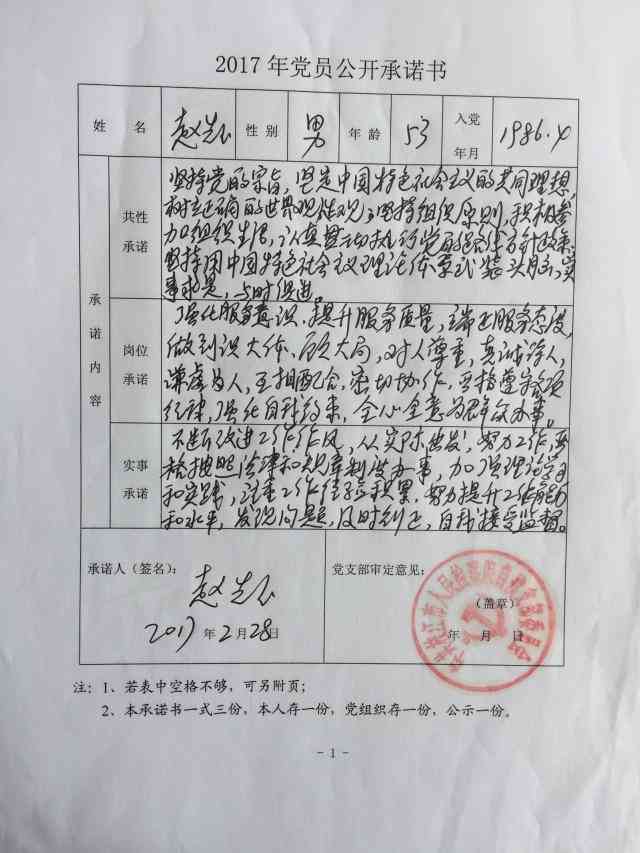 2017年党员公开承诺书
姓 名 赵 性别 男 年龄 53 入党年月 1986.4
承诺内容
共性承诺
坚持党的宗旨，坚定中国特色社会主义的共同理想，
树立正确的世界观 坚持组织原则，积极参
加组织生活，认真贯 执行党的 方针政策，
坚持用中国特色社会主义理论体系武装头脑，实
事求是，与时俱进。
岗位承诺
强化服务意识、提升服务质量，端正服务态度，
做到识大体、顾大局，对人尊重，真诚待人，
谦虚为人，互相配合，密切协作，严格遵守各项
纪律，强化自我约束，全心全意为群众办事。
实事承诺
不断改进工作作风，从实际出发，努力工作，严
格按照法律和规章制度办事，加强理论学习
和实践，注重工作经验积累，努力提升工作能力
和水平，发现问题，及时纠正，自我接受监督。
承诺人（签名）：
赵
2017年2月28日
党支部审定意见：
（盖章）
年 月 日
注：1、若表中空格不够，可另附页；
2、本承诺书一式三份，本人存一份，党组织存一份，公示一份。
- 1 -